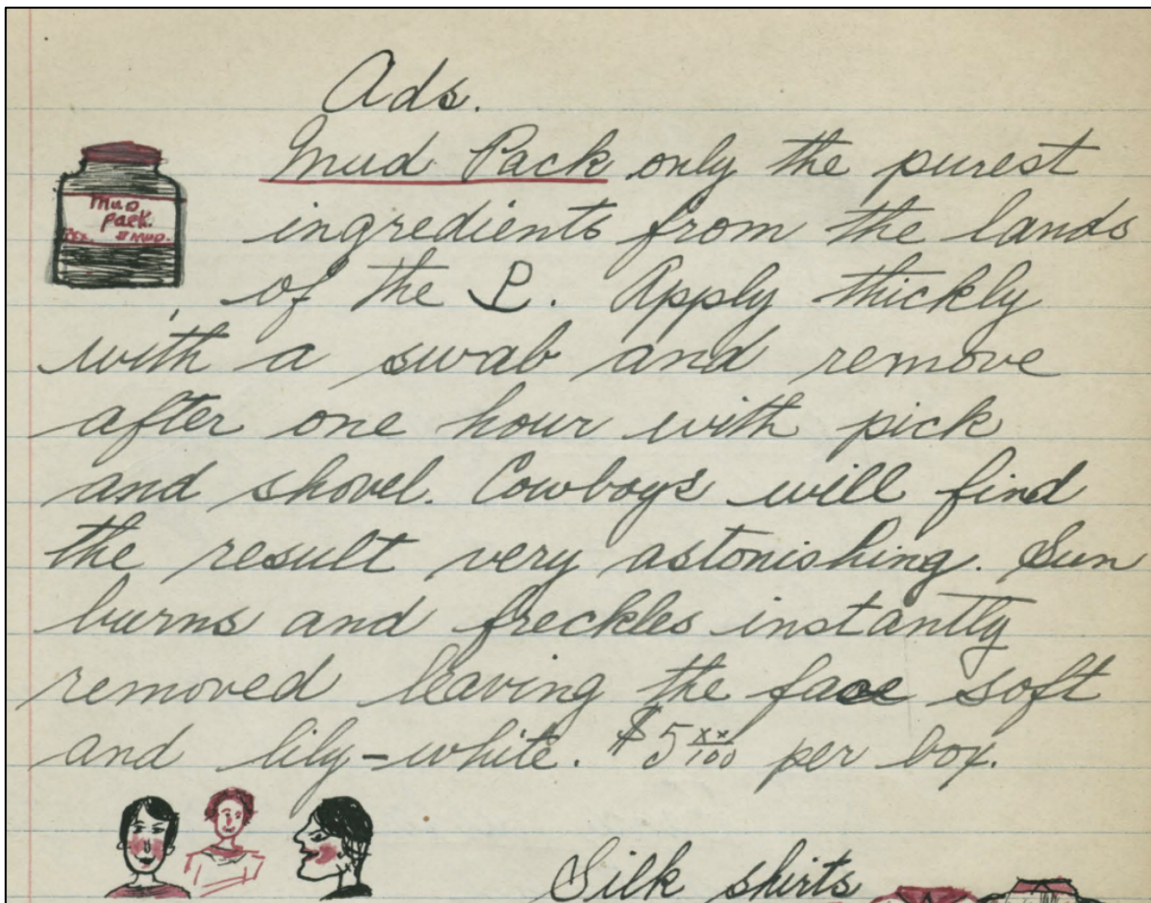 Ads.
Mud Pack only the purest
ingredients from the lands
Mud
pack.
$ MUD.
of the P. Apply thickly
with a swab and remove
after one hour with pick
and shovel. Cowboys will find
the result very astonishing. Sun
burns and freckles instantly
removed leaving the face soft
and lily-white. $5 xx/100 per box.
Silk shirts